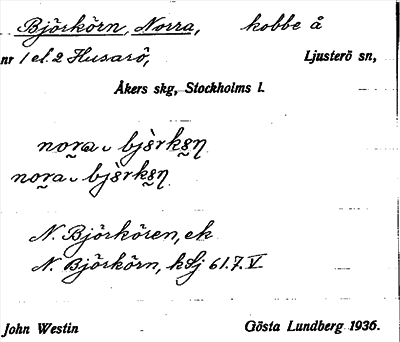 Björkörn, Norra, kobbe å
nr 1 el. 2 Husarö, Ljusterö sn,
Åkers skg, Stockholms l.
N. Björkören, ek
N. Björkörn, 61.7.V
John Westin Gösta Lundberg 1936.